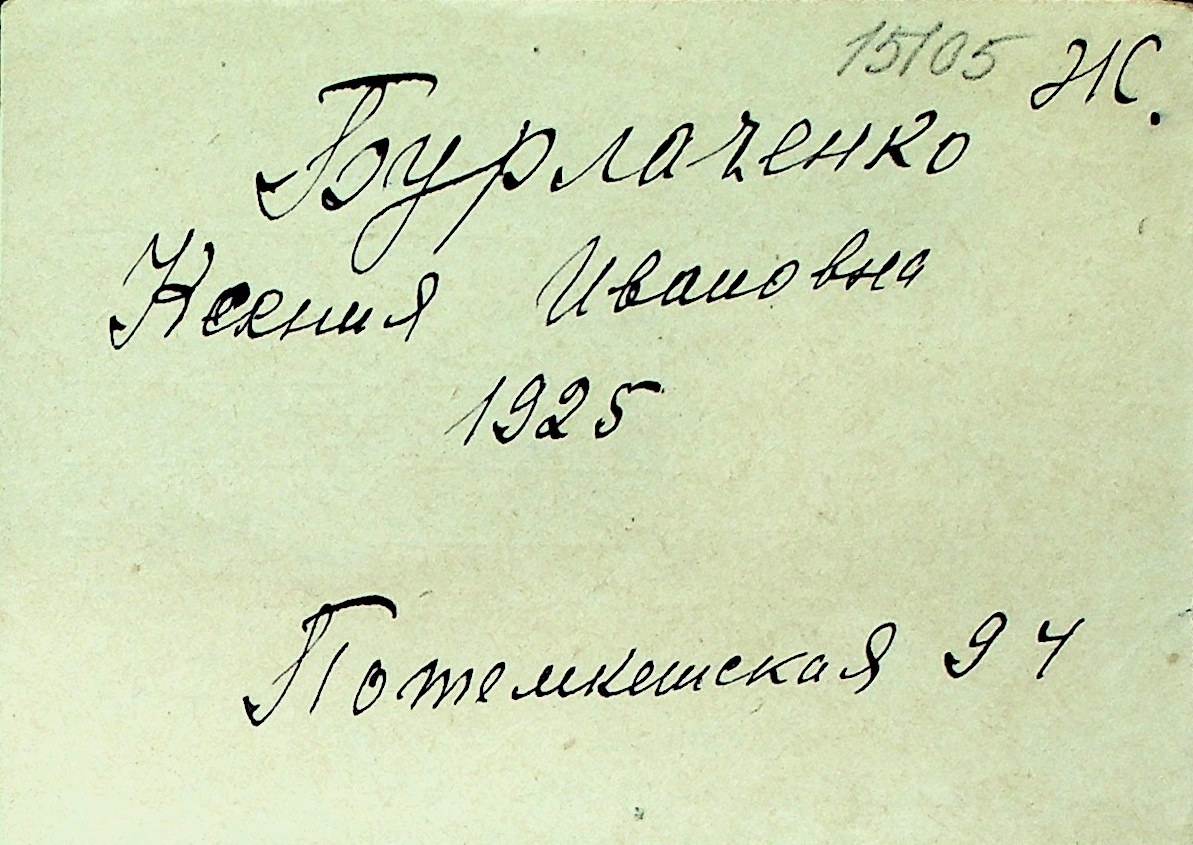 15105 Ж.
Бурлаченко
Ксения Ивановна
1925
Потемкинская 94